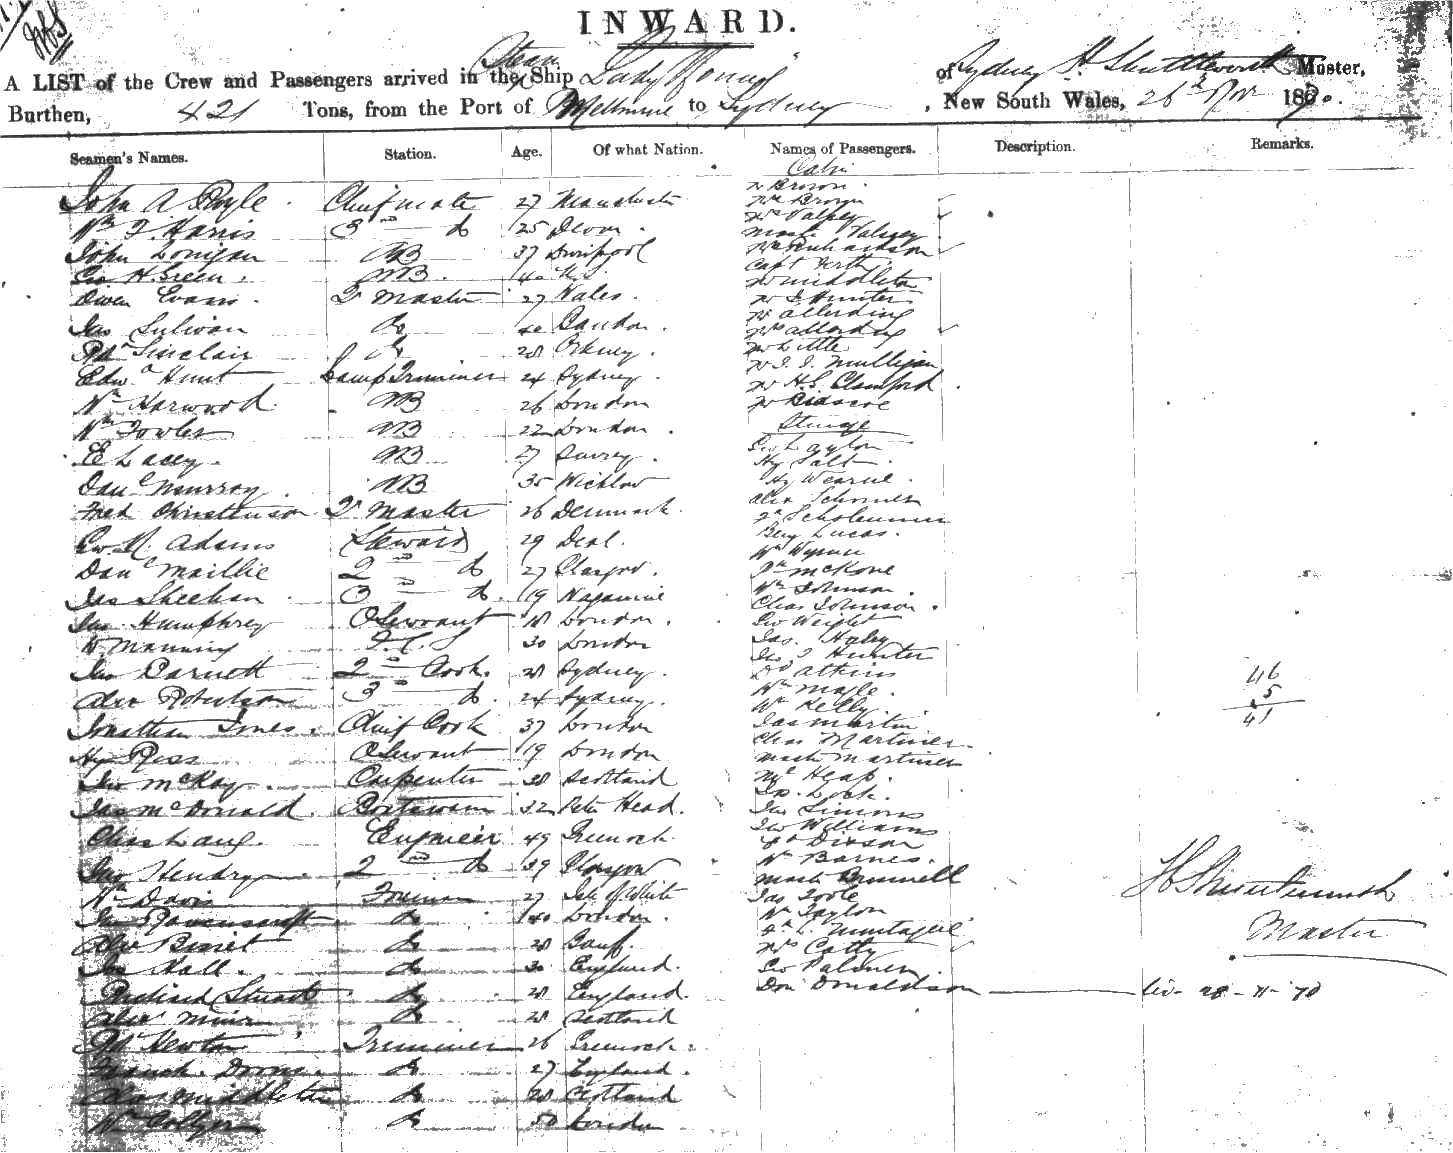 INWARD.
A LIST of the Crew and Passengers arrived in the Steam Ship Lady Young of Sydney H Shuttleworth Master,
Burthen, 421 Tons, from the Port of Melbourne to Sydney, New South Wales, 26th Nov 1870.
Seamen's Names. Station. Age. Of what Nation. Names of Passengers. Description. Remarks.
John A Chief mate 27 Manchester
Wm F. Harris 3rd do 25 Devon.
John Donigan AB 37 Liverpool
Geo H. Green. AB. 40
Owen Evans. Qr Master 27 Wales.
Jas Sulivan do 40 Bandon.
Sinclair do 28 Orkney.
Edwd Hunt Lamp Trimmer 24 Sydney.
Wm Harwood AB 26 London
Wm Fowler AB 22 London.
E Lacey. AB 27 Surrey.
Danl Murray AB 35 Wicklow
Fred Christenson Qr Master 26 Denmark.
Geo N. Adams Steward 29 Deal.
Danl Maillie 2nd do 27 Glasgow.
Jas Sheehan 3rd do. 19
Jno. Humphrey O Servant 18 London.
W Manning F.C.S 30 London
Jno Barnett 2nd Cook. 28 Sydney.
Alex Robertson 3rd do. 24 Sydney.
Jonathan Jones. Chief Cook 37 London
Hy Ross O Servant 19 London
Jno McKay. Carpenter 38 Scotland
Jas McDonald. Boatswain 32 Peter Head.
Chas Lang. Engineer 49 Greenock.
Jno Hendry 2nd do 39 Glasgow
Wm Davis Fireman 27 Isle of White
Jno Ravenscroft do 40 London.
Alex do 28 Banff.
Jos Hall. do 30 England.
Richard Stuart do 28 England.
Alex Muir do 28 Scotland
Newton Trimmer 26 Greenock.
do 27 England.
Middleton do 28 Scotland
Wm Collyer do 50 London
Cabin
Mr Brown.
Mrs Brown
Mrs Valpey
Mast Valpey.
Mrs Richardson
Capt Firth.
Mr Middleton
Mr J Hunter
Mr Allerding
Mrs Allerding
Mr Little
Mr J. J. Mulligan
Mr H.S.
Mr
Steerage
Geo Layton
Hy Salt
Hy Wearne.
Alex
Benj Lucas.
Wm Wynne
McKone
Wm Johnson.
Chas Johnson.
Geo Weight
Jas. Haley
Jno J Hunter
Atkins
Wm
Wm Kelly
Jas Martin
Chas Martiner
Mast Martiner
Heap.
Jos. Lock.
Jno Simons
Jno Williams
Dixson
Wm Barnes.
Mast Bunnell
Jas Toole
Wm Taylor
Muntague
Mrs Catty
Geo Palmer
Don Donaldson
46
5
41
H Shuttleworth
Master
28-11-70